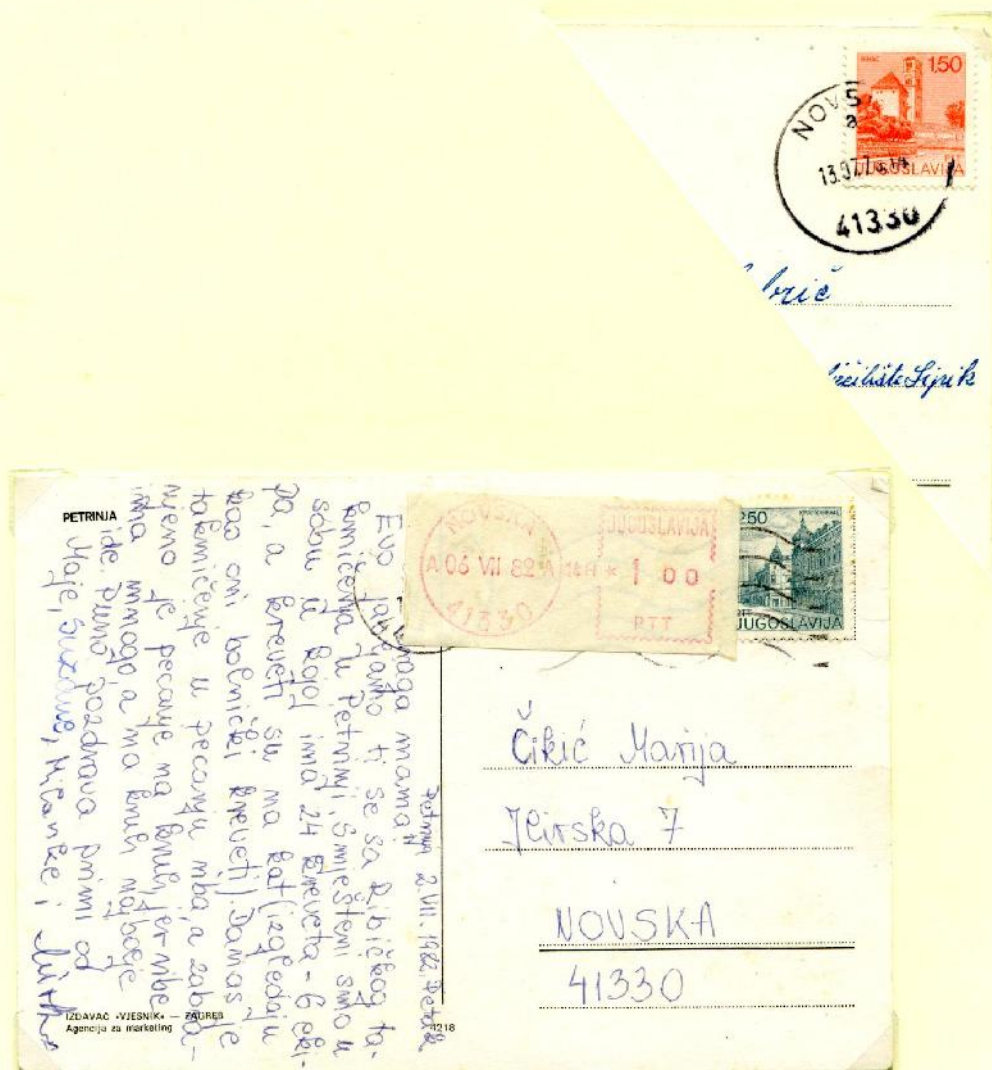 BIHAĆ
1,50
JUGOSLAVIJA
NOVS
a
13.07.7
41330
PETRINJA
NOVSKA
A 06 VII 82 A
41330
JUGOSLAVIJA
* 1 00
PTT
2,50
JUGOSLAVIJA
Petrinja 2.VII.1982. Petak
Evo draga mama!
javljamo ti se sa Ribičkog ta-
kmičenja u Petrinji, smješteni smo u
sobu u kojoj ima 24 kreveta - 6 eki-
pa, a kreveti su na kat (izgledaju
kao oni bolnički kreveti). Danas je
takmičenje u pecanju riba, a zabra-
njeno je pecanje na kruh, jer ribe
ima mnogo, a na kruh najbolje
ide. Puno pozdrava primi od
Maje, Suzane, Milanke i
Čikić Marija
Ilirska 7
NOVSKA
41330
IZDAVAČ »VJESNIK« — ZAGREB
Agencija za marketing
4218